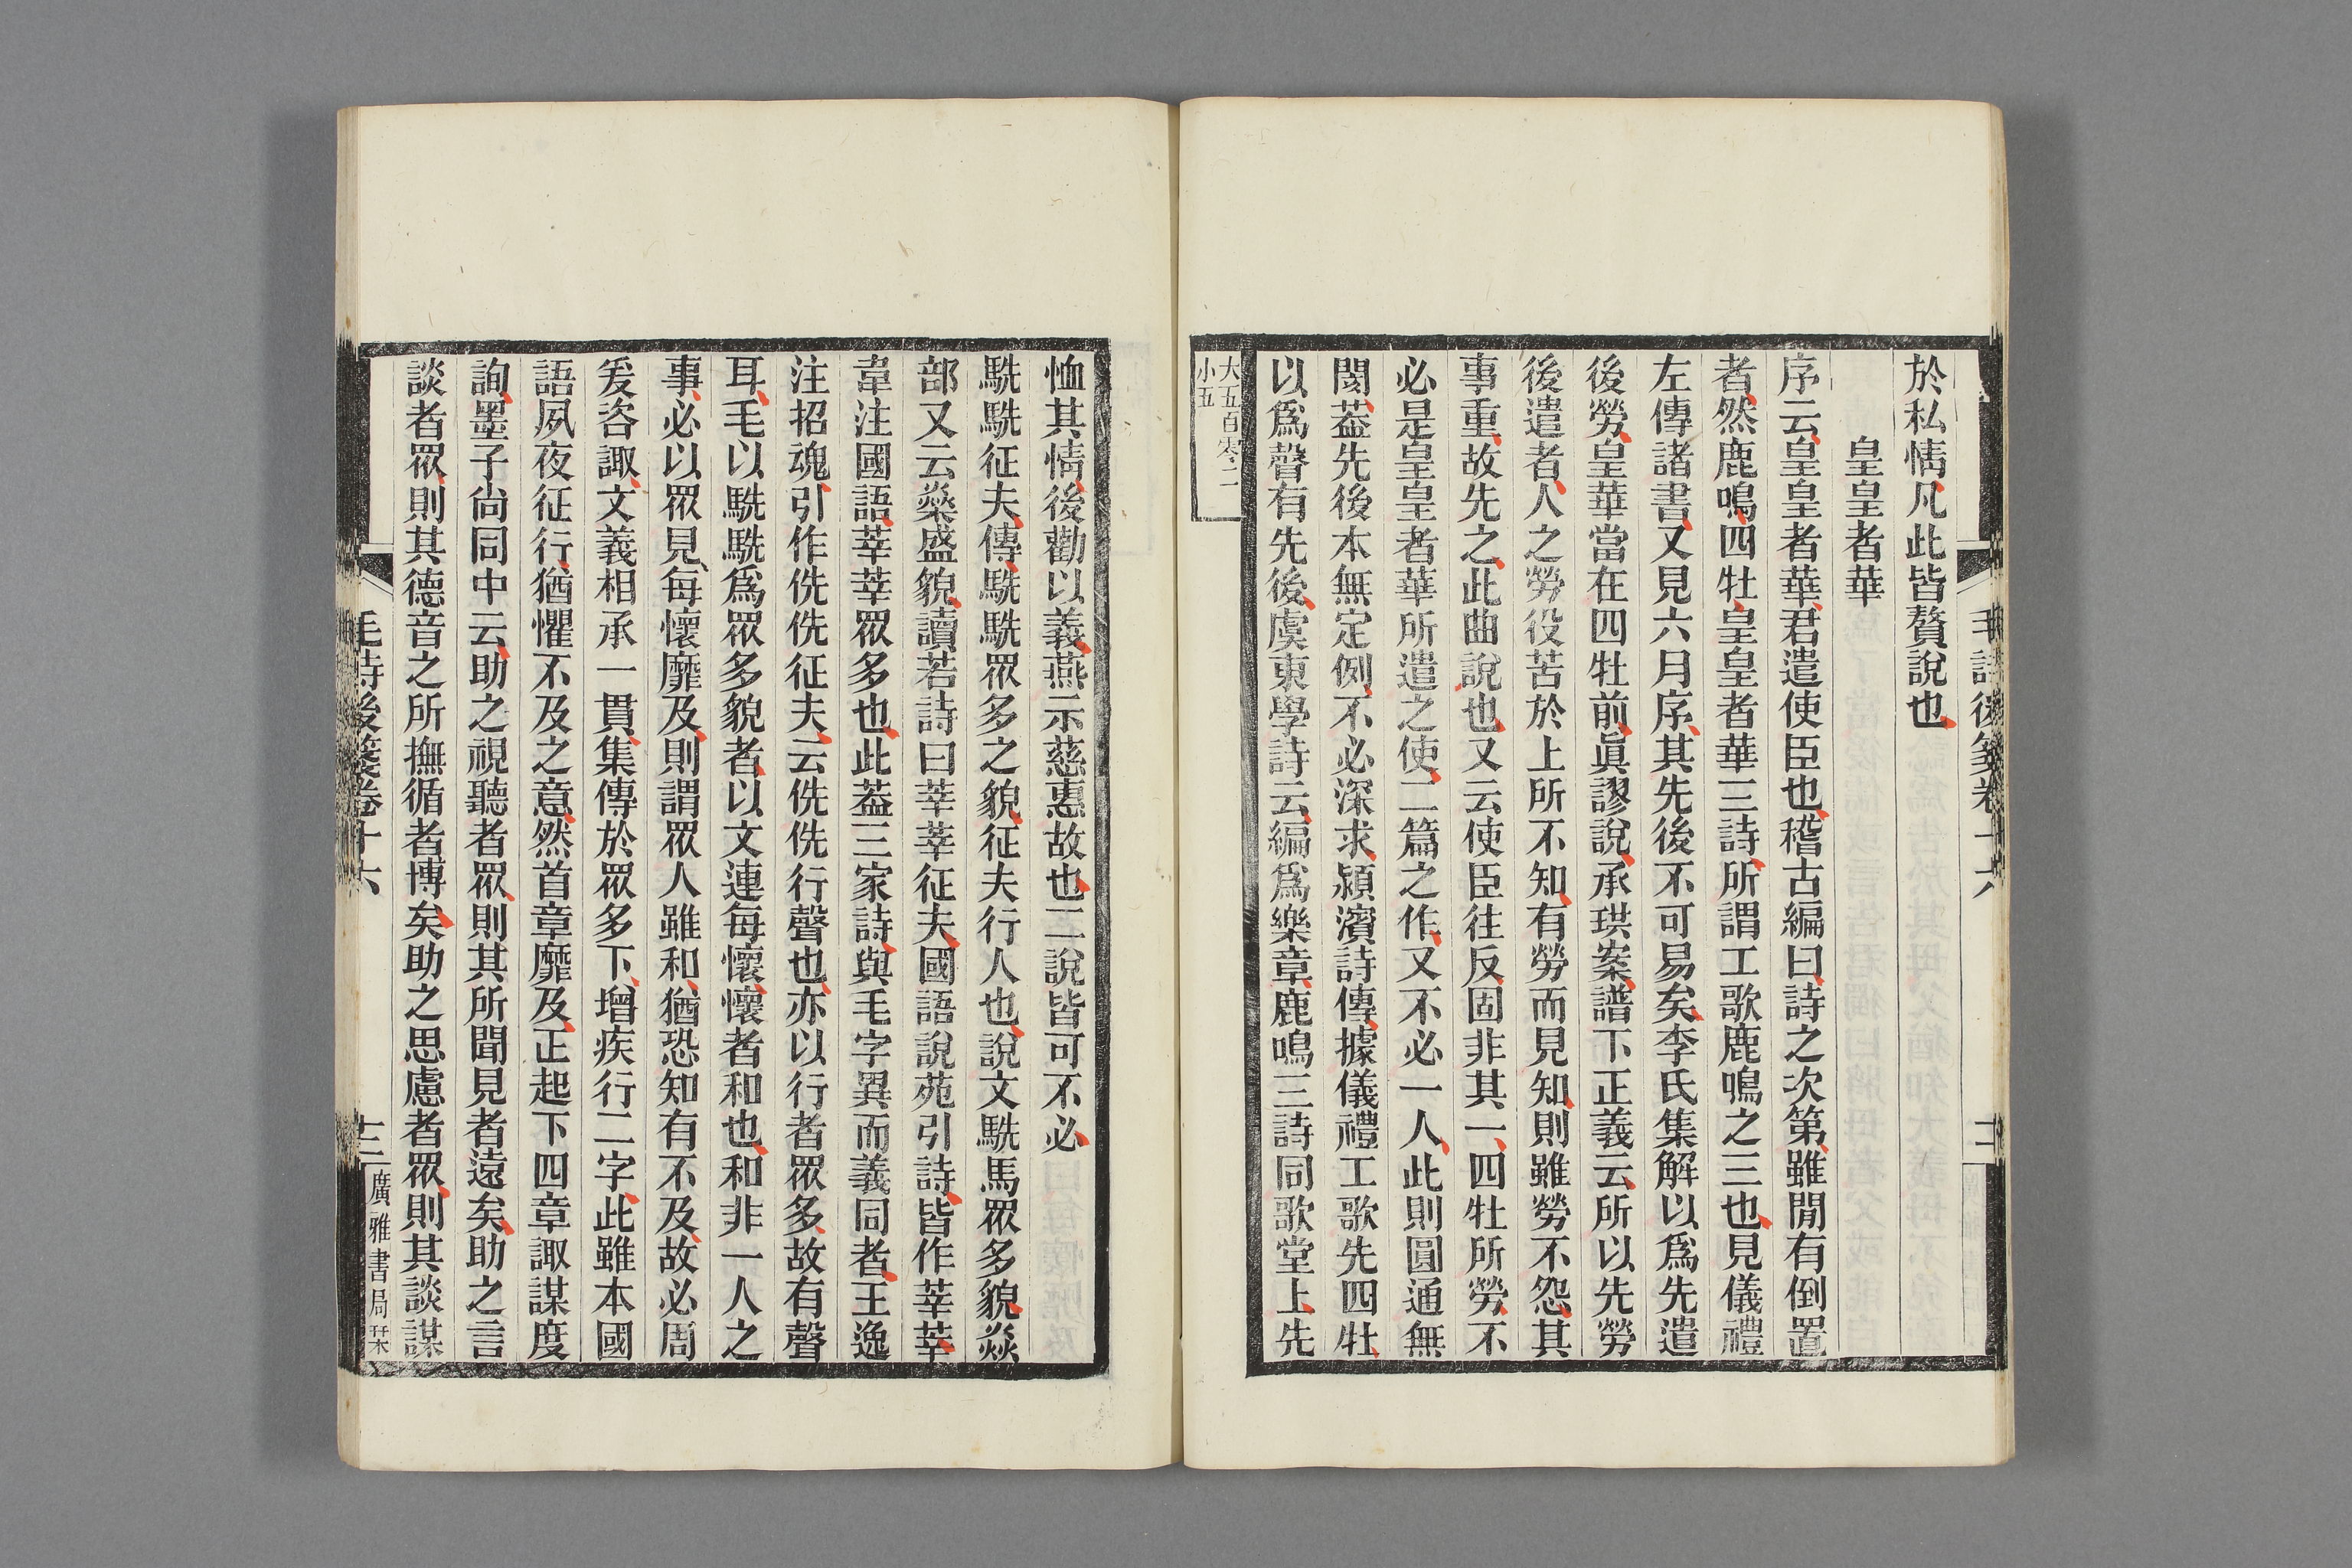 毛詩後箋卷十六
二
於私情凡此皆贅說也
皇皇者華
序云皇皇者華君遣使臣也稽古編曰詩之次第雖閒有倒置
者然鹿鳴四牡皇皇者華三詩所謂工歌鹿鳴之三也見儀禮
左傳諸書又見六月序其先後不可易矣李氏集解以爲先遣
後勞皇華當在四牡前眞謬說承珙案譜下正義云所以先勞
後遣者人之勞役苦於上所不知有勞而見知則雖勞不怨其
事重故先之此曲說也又云使臣往反固非其一四牡所勞不
必是皇皇者華所遣之使二篇之作又不必一人此則圓通無
閡葢先後本無定例不必深求潁濱詩傳據儀禮工歌先四牡
以爲聲有先後虞東學詩云編爲樂章鹿鳴三詩同歌堂上先
大五百零二
小五
恤其情後勸以義燕示慈惠故也二說皆可不必
駪駪征夫傳駪駪眾多之貌征夫行人也說文駪馬眾多貌焱
部又云燊盛貌讀若詩曰莘莘征夫國語說苑引詩皆作莘莘
韋注國語莘莘眾多也此葢三家詩與毛字異而義同者王逸
注招魂引作侁侁征夫云侁侁行聲也亦以行者眾多故有聲
耳毛以駪駪爲眾多貌者以文連每懷懷者和也和非一人之
事必以眾見每懷靡及則謂眾人雖和猶恐知有不及故必周
爰咨諏文義相承一貫集傳於眾多下增疾行二字此雖本國
語夙夜征行猶懼不及之意然首章靡及正起下四章諏謀度
詢墨子尚同中云助之視聽者眾則其所聞見者遠矣助之言
談者眾則其德音之所撫循者博矣助之思慮者眾則其談謀
毛詩後箋卷十六
三
廣雅書局栞